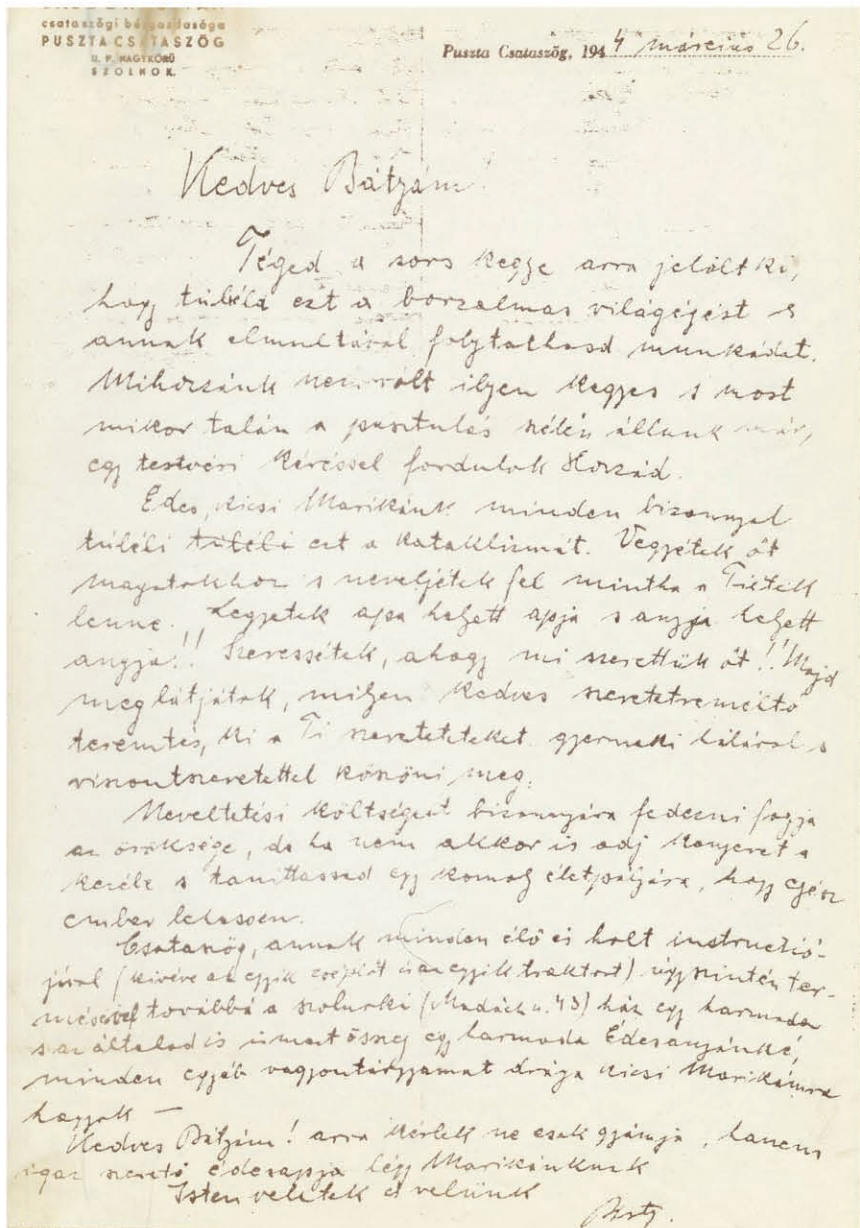 csataszögi bérgazdasága
PUSZTA CSATASZÖG
U. P. NAGYKÖRÜ
SZOLNOK.
Puszta Csataszög, 1944 március 26.
Kedves Bátyám!
Téged a sors kegye arra jelölt ki,
hogy túléld ezt a borzalmas világégést s
annak elmultával folytathasd munkádat.
Mihozzánk nem vólt ilyen kegyes s most
mikor talán a pusztulás szélén állunk már,
egy testvéri kéréssel fordulok Hozzád.
Édes, kicsi Marikánk minden bizonnyal
túléli túléli ezt a kataklizmát. Vegyétek őt
magatokhoz s neveljétek fel mintha a Tiétek
lenne. Legyetek apa helyett apja s anyja helyett
anyja!! Szeressétek, ahogy mi szerettük őt!! Majd
meglátjátok, milyen kedves szeretetreméltó
teremtés, ki a Ti szereteteteket gyermeki hálával s
viszontszeretettel köszöni meg.
Neveltetési költségeit bizonyára fedezni fogja
az öröksége, de ha nem akkor is adj kenyeret a
kezébe s taníttassad egy komoly életpályára, hogy egész
ember lehessen.
Csataszög, annak minden élő és holt instructió-
jával (kivéve az egyik cséplőt és az egyik traktort) úgyszintén ter-
mésével továbbá a szolnoki (Madách u. 43) ház egy harmada
s az általad is ismert összeg egy harmada Édesanyánké,
minden egyéb vagyontárgyamat drága kicsi Marikámra
hagyok —
Kedves Bátyám! arra kérlek ne csak gyámja, hanem
igaz szerető édesapja légy Marikánknak
Isten veletek és velünk